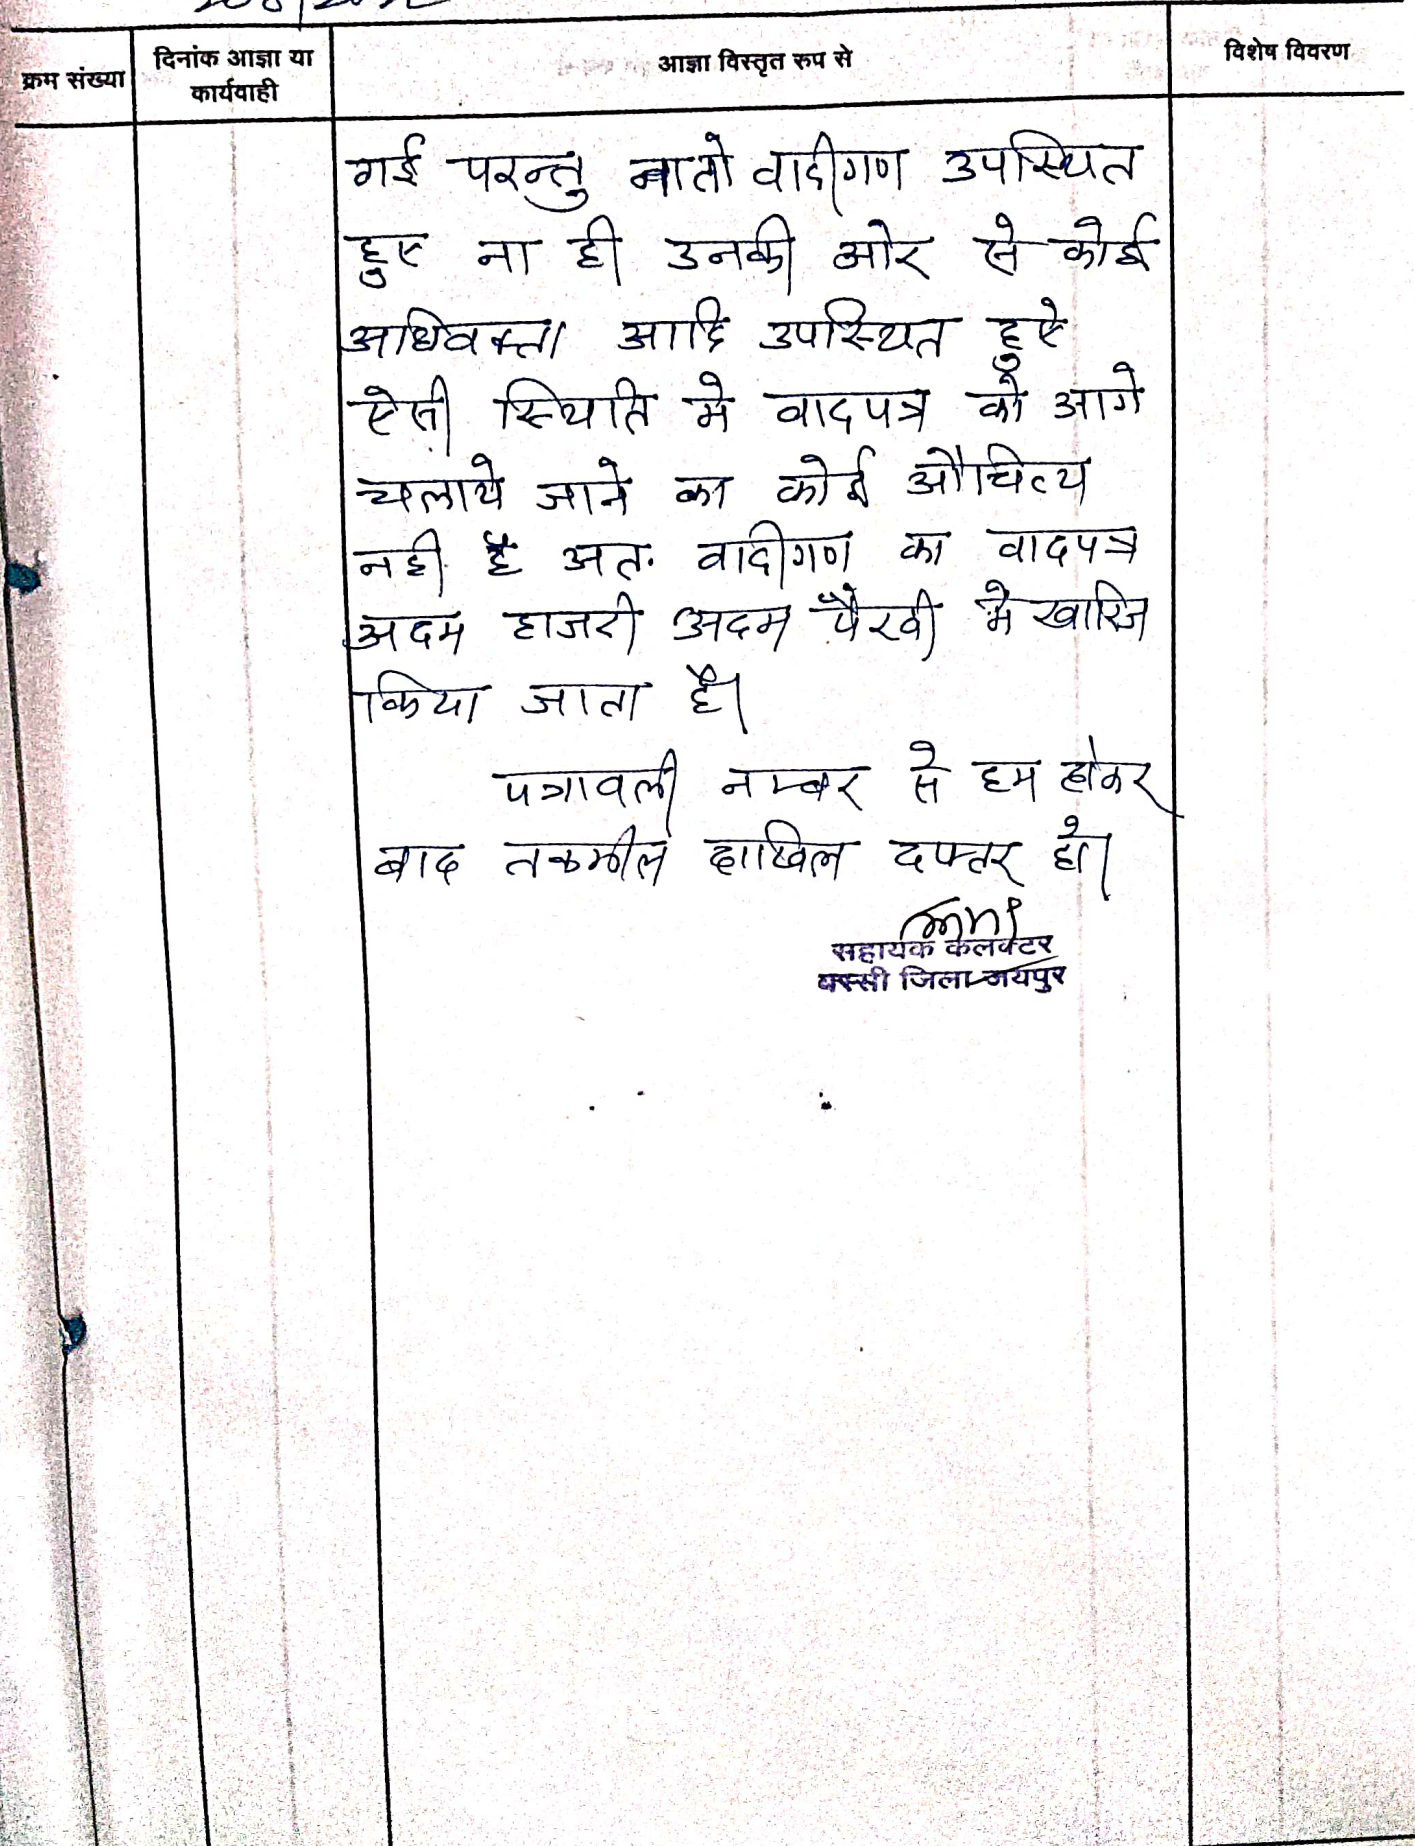 क्रम संख्या
दिनांक आज्ञा या
कार्यवाही
आज्ञा विस्तृत रुप से
विशेष विवरण
गई परन्तु नातो वादीगण उपस्थित
हुए ना ही उनकी ओर से कोई
अधिवक्ता आदि उपस्थित हुऐ
ऐसी स्थिति मे वादपत्र को आगे
चलाये जाने का कोई औचित्य
नही है अत. वादीगण का वादपत्र
अदम हाजरी अदम पैरवी मे खारिज
किया जाता है।
पत्रावली नम्बर से कम होकर
बाद तकमील दाखिल दफ्तर हो।
सहायक कलक्टर
बस्सी जिला-जयपुर